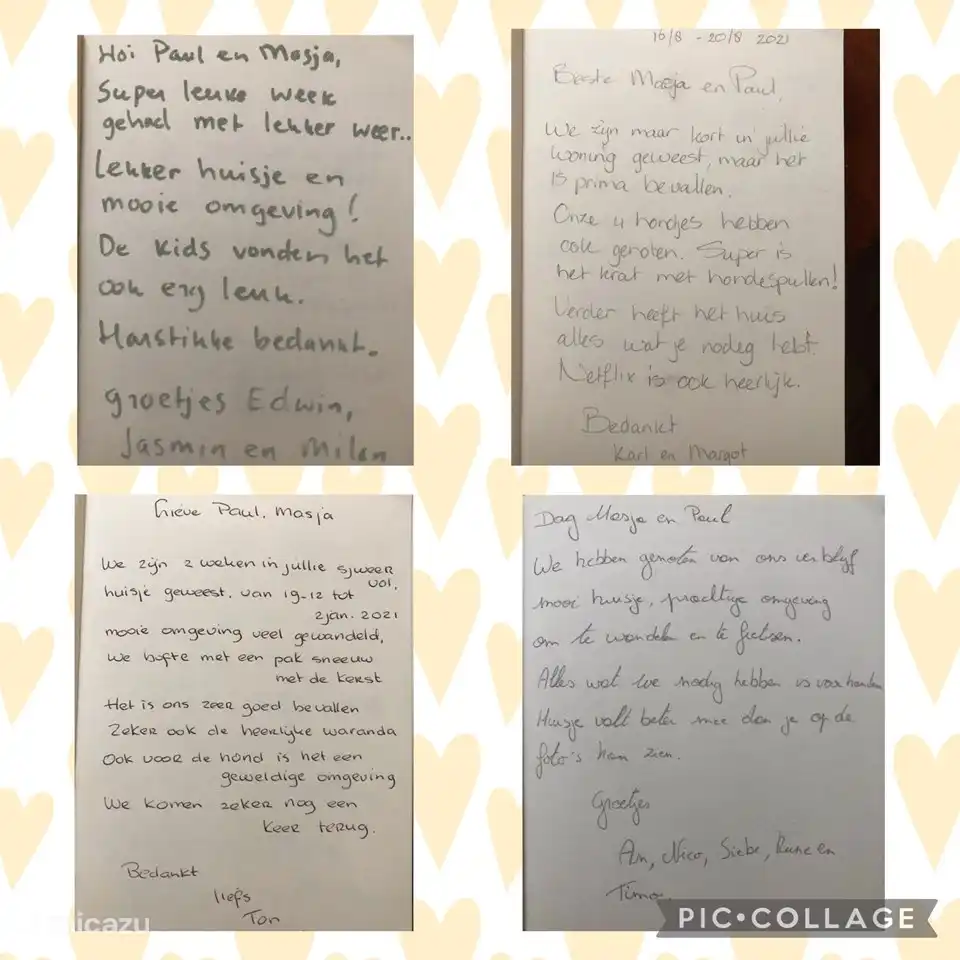 Hoi Paul en Masja,
Super leuke week
gehad met lekker weer..
Lekker huisje en
mooie omgeving!
De kids vonden het
ook erg leuk.
Harstikke bedankt.
groetjes Edwin,
Jasmin en Milan
16/8 - 20/8 2021
Beste Masja en Paul,
We zijn maar kort in jullie
woning geweest, maar het
is prima bevallen.
Onze 4 hondjes hebben
ook genoten. Super is
het krat met hondespullen!
Verder heeft het huis
alles wat je nodeg hebt.
Netflix is ook heerlijk.
Bedankt
Karl en Margot
Lieve Paul, Masja
We zijn 2 weken in jullie sfeer
vol.
huisje geweest. van 19-12 tot
2 jan. 2021
mooie omgeving veel gewandeld,
we bofte met een pak sneeuw
met de kerst
Het is ons zeer goed bevallen
Zeker ook de heerlijke waranda
Ook voor de hond is het een
geweldige omgeving
We komen zeker nog een
keer terug.
Bedankt
liefs
Ton
Dag Masja en Paul
We hebben genoten van ons verblijf
mooi huisje, prachtige omgeving
om te wandelen en te fietsen.
Alles wat we nodig hebben is voorhanden
Huisje valt beter mee dan je op de
foto's kan zien.
Groetjes
An, Nico, Siebe, Rune en
Timo
PIC•COLLAGE
micazu